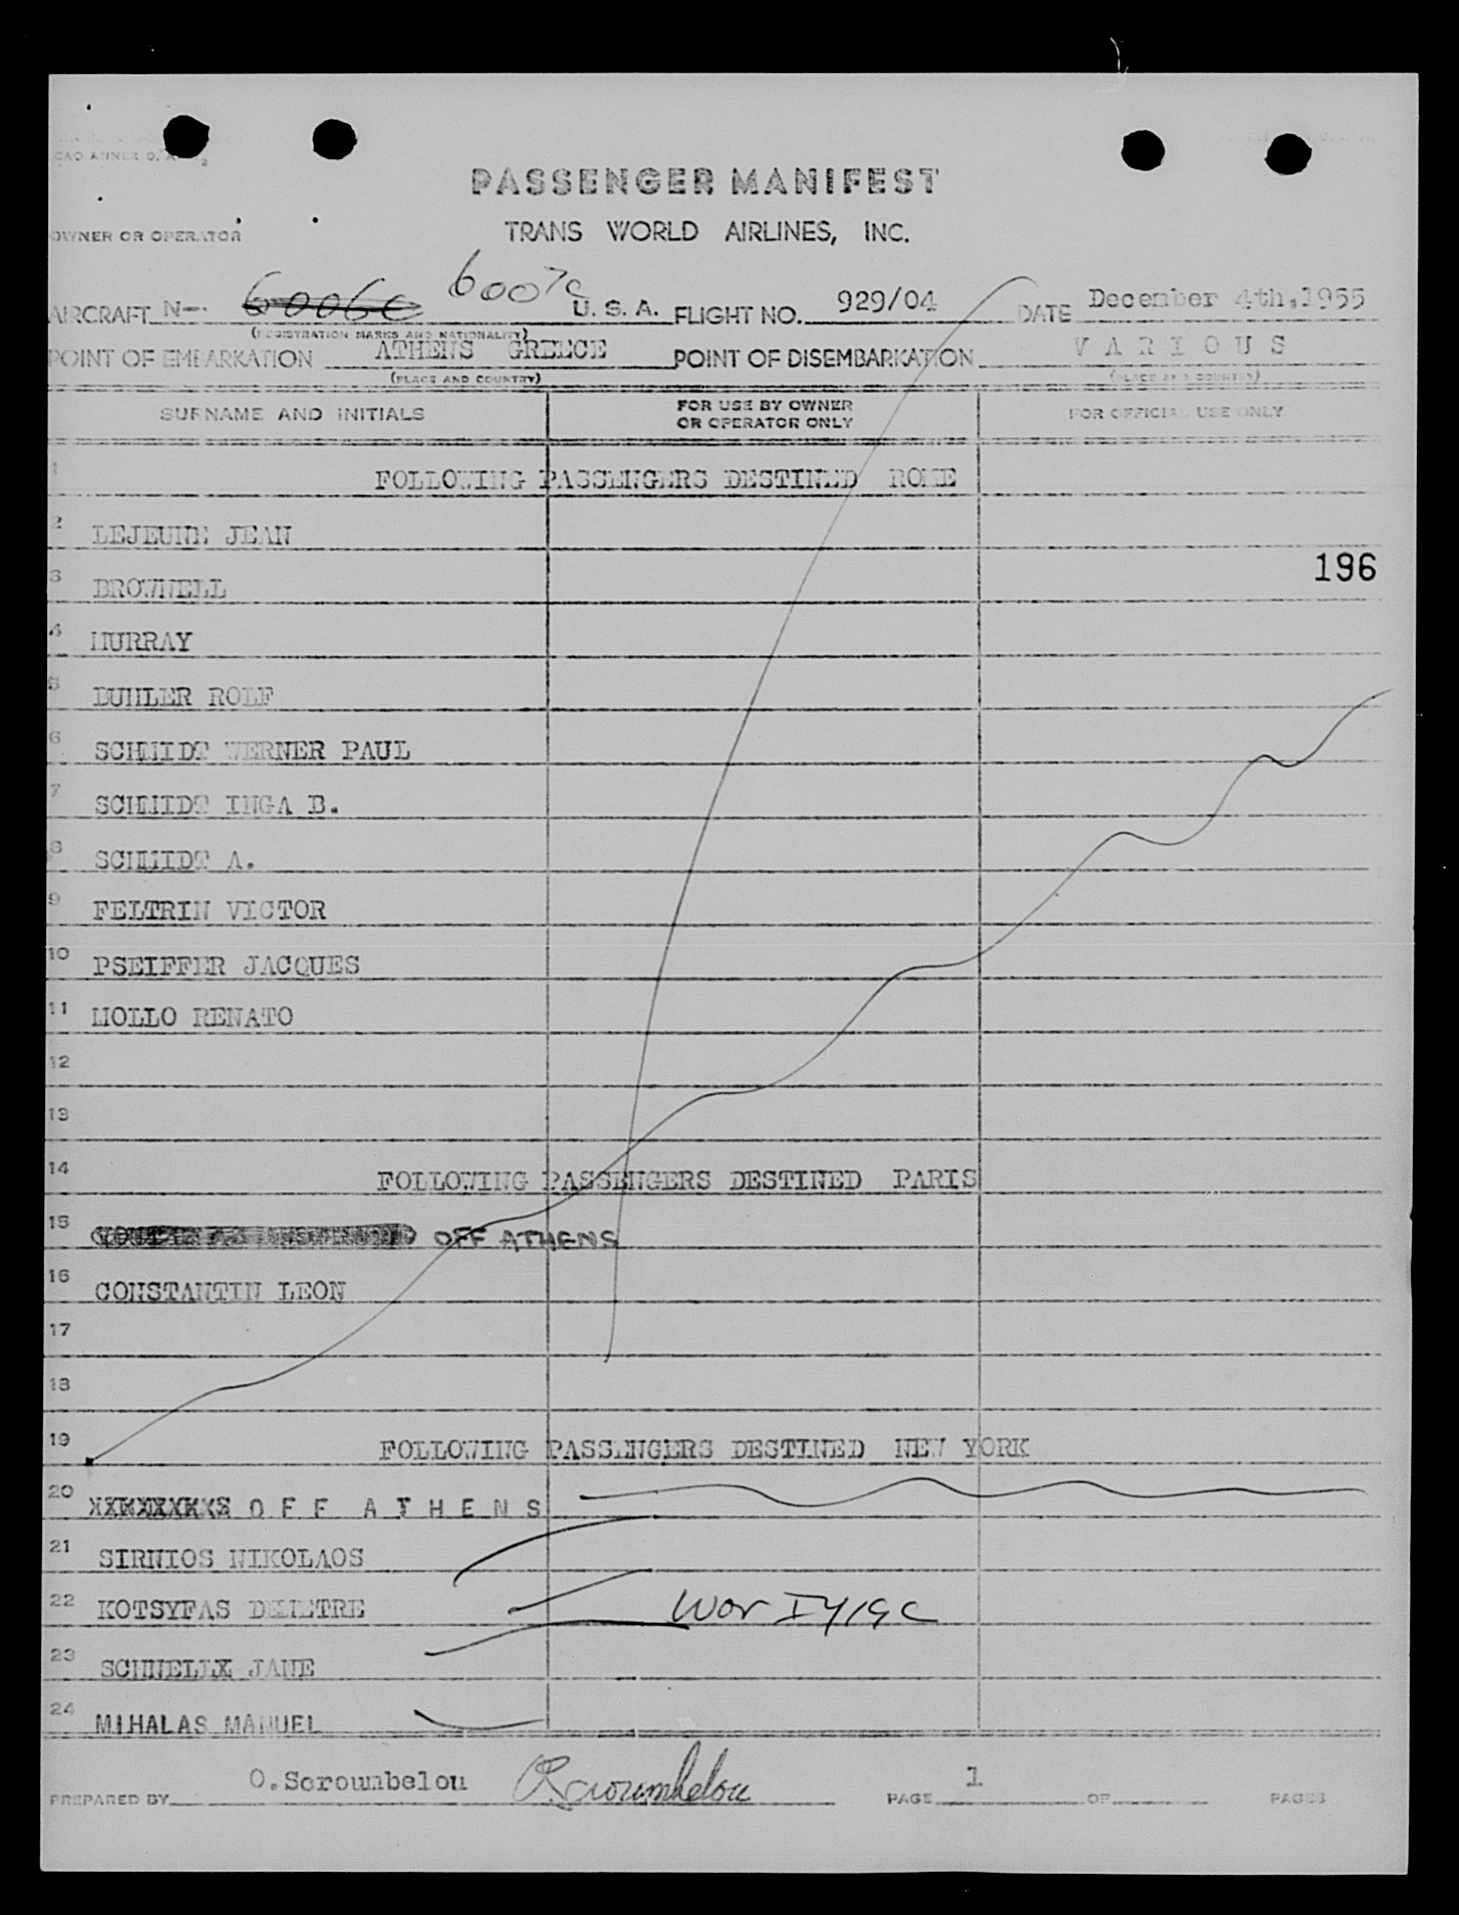 PASSENGER MANIFEST
OWNER OR OPERATOR TRANS WORLD AIRLINES, INC.
AIRCRAFT N-- 6006C 6007C U. S. A. FLIGHT NO. 929/04 DATE December 4th,1955
(REGISTRATION MARKS AND NATIONALITY)
POINT OF EMBARKATION ATHENS GREECE POINT OF DISEMBARKATION V A R I O U S
(PLACE AND COUNTRY) (PLACE AND COUNTRY)
SURNAME AND INITIALS FOR USE BY OWNER OR OPERATOR ONLY FOR OFFICIAL USE ONLY
1 FOLLOWING PASSENGERS DESTINED ROME
2 LEJEUNE JEAN
196
3 BROWNELL
4 MURRAY
5 DUHLER ROLF
6 SCHMIDT WERNER PAUL
7 SCHMIDT INGA B.
8 SCHMIDT A.
9 FELTRIN VICTOR
10 PSEIFFER JACQUES
11 MOLLO RENATO
12
13
14 FOLLOWING PASSENGERS DESTINED PARIS
15 OFF ATHENS
16 CONSTANTIN LEON
17
18
19 FOLLOWING PASSENGERS DESTINED NEW YORK
20 O F F A T H E N S
21 SIRNIOS NIKOLAOS
22 KOTSYFAS DEMETRE
23 SCHNELLX JANE
24 MIHALAS MANUEL
PREPARED BY O.Scroumbelou PAGE 1 OF PAGES